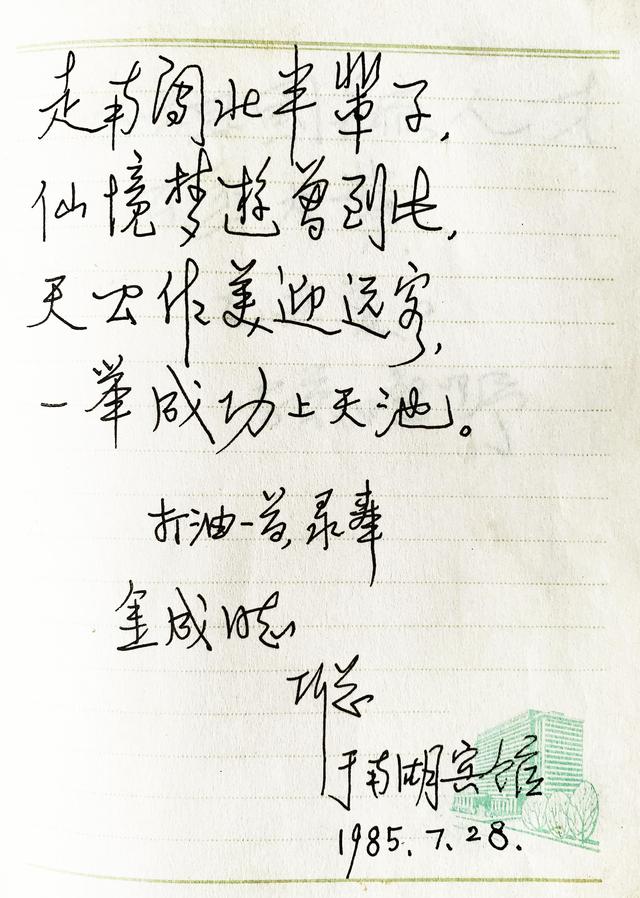 走南闯北半輩子,
仙境梦遊曾到此,
天公作美迎远客,
一举成功上天池。
打油一首,录奉
金成同志
于南湖宾馆
1985.7.28.